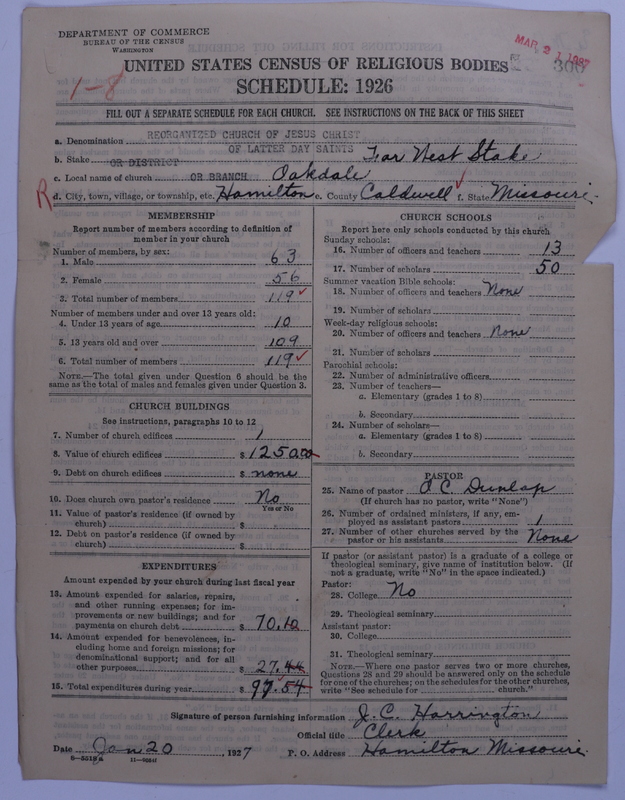 DEPARTMENT OF COMMERCE
BUREAU OF THE CENSUS
WASHINGTON
MAR 21 1927
300
1-8
UNITED STATES CENSUS OF RELIGIOUS BODIES
SCHEDULE: 1926
FILL OUT A SEPARATE SCHEDULE FOR EACH CHURCH. SEE INSTRUCTIONS ON THE BACK OF THIS SHEET
a. Denomination REORGANIZED CHURCH OF JESUS CHRIST
OF LATTER DAY SAINTS
b. Stake OR DISTRICT Far West Stake
c. Local name of church OR BRANCH Oakdale
R d. City, town, village, or township, etc. Hamilton e. County Caldwell f. State Missouri
MEMBERSHIP
Report number of members according to definition of
member in your church
Number of members, by sex:
1. Male 63
2. Female 56
3. Total number of members 119
Number of members under and over 13 years old:
4. Under 13 years of age 10
5. 13 years old and over 109
6. Total number of members 119
NOTE.—The total given under Question 6 should be the
same as the total of males and females given under Question 3.
CHURCH BUILDINGS
See instructions, paragraphs 10 to 12
7. Number of church edifices 1
8. Value of church edifices $ 1250.00
9. Debt on church edifices $ none
10. Does church own pastor's residence No
Yes or No
11. Value of pastor's residence (if owned by
church) $
12. Debt on pastor's residence (if owned by
church) $
EXPENDITURES
Amount expended by your church during last fiscal year
13. Amount expended for salaries, repairs,
and other running expenses; for im-
provements or new buildings; and for
payments on church debt $ 70.10
14. Amount expended for benevolences, in-
cluding home and foreign missions; for
denominational support; and for all
other purposes $ 27.44
15. Total expenditures during year $ 97.54
CHURCH SCHOOLS
Report here only schools conducted by this church
Sunday schools:
16. Number of officers and teachers 13
17. Number of scholars 50
Summer vacation Bible schools:
18. Number of officers and teachers None
19. Number of scholars
Week-day religious schools:
20. Number of officers and teachers None
21. Number of scholars
Parochial schools:
22. Number of administrative officers
23. Number of teachers—
a. Elementary (grades 1 to 8)
b. Secondary
24. Number of scholars—
a. Elementary (grades 1 to 8)
b. Secondary
PASTOR
25. Name of pastor O.C. Dunlap
(If church has no pastor, write "None")
26. Number of ordained ministers, if any, em-
ployed as assistant pastors 1
27. Number of other churches served by the
pastor or his assistants None
If pastor (or assistant pastor) is a graduate of a college or
theological seminary, give name of institution below. (If
not a graduate, write "No" in the space indicated.)
Pastor:
28. College No
29. Theological seminary
Assistant pastor:
30. College
31. Theological seminary
NOTE.—Where one pastor serves two or more churches,
Questions 28 and 29 should be answered only on the schedule
for one of the churches; on the schedules for the other churches,
write "See schedule for church."
Signature of person furnishing information J.C. Harrington
Official title Clerk
Date Jan 20, 1927 P. O. Address Hamilton Missouri